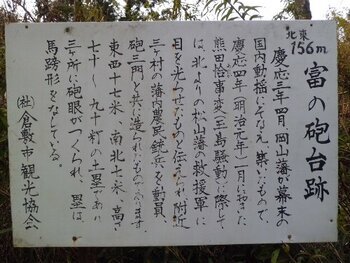 北東
156m
富の砲台跡
慶応三年四月、岡山藩が幕末の
国内動揺にそなえ、築いたもので、
慶応四年(明治元年)一月におきた
熊田恰事変(玉島騒動)に際して
は、北よりの松山藩の救援軍に
目を光らせたものと伝えられ附近
三ヶ村の藩内農民銃兵を動員
砲三門と共に造られたものでつくります。
東西四十七米、南北七米、高さ
七十~九十糎の土塁であり
三ヶ所に砲眼がつくられ、塁は
馬蹄形をなしている。
(社)倉敷市観光協会